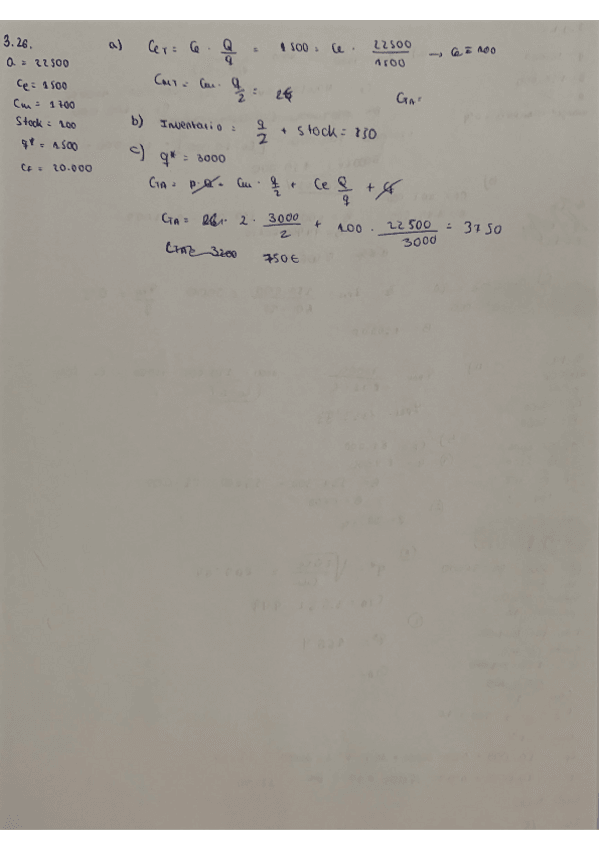 3.26.
Q = 22500
Ce = 1500
Cm = 1700
Stock = 100
q* = 1500
CF = 20.000
a) CeT = Ce · Q/q = 1500 = Ce · 22500/1500 → Ce = 100
CmT = Cm · q/2 =
CTA =
b) Inventario = q/2 + Stock = 850
c) q* = 3000
CTA = P·Q + Cm · q/2 + Ce Q/q + CF
CTA = 2 · 3000/2 + 100 · 22500/3000 = 3750
CTA = 3200 750€